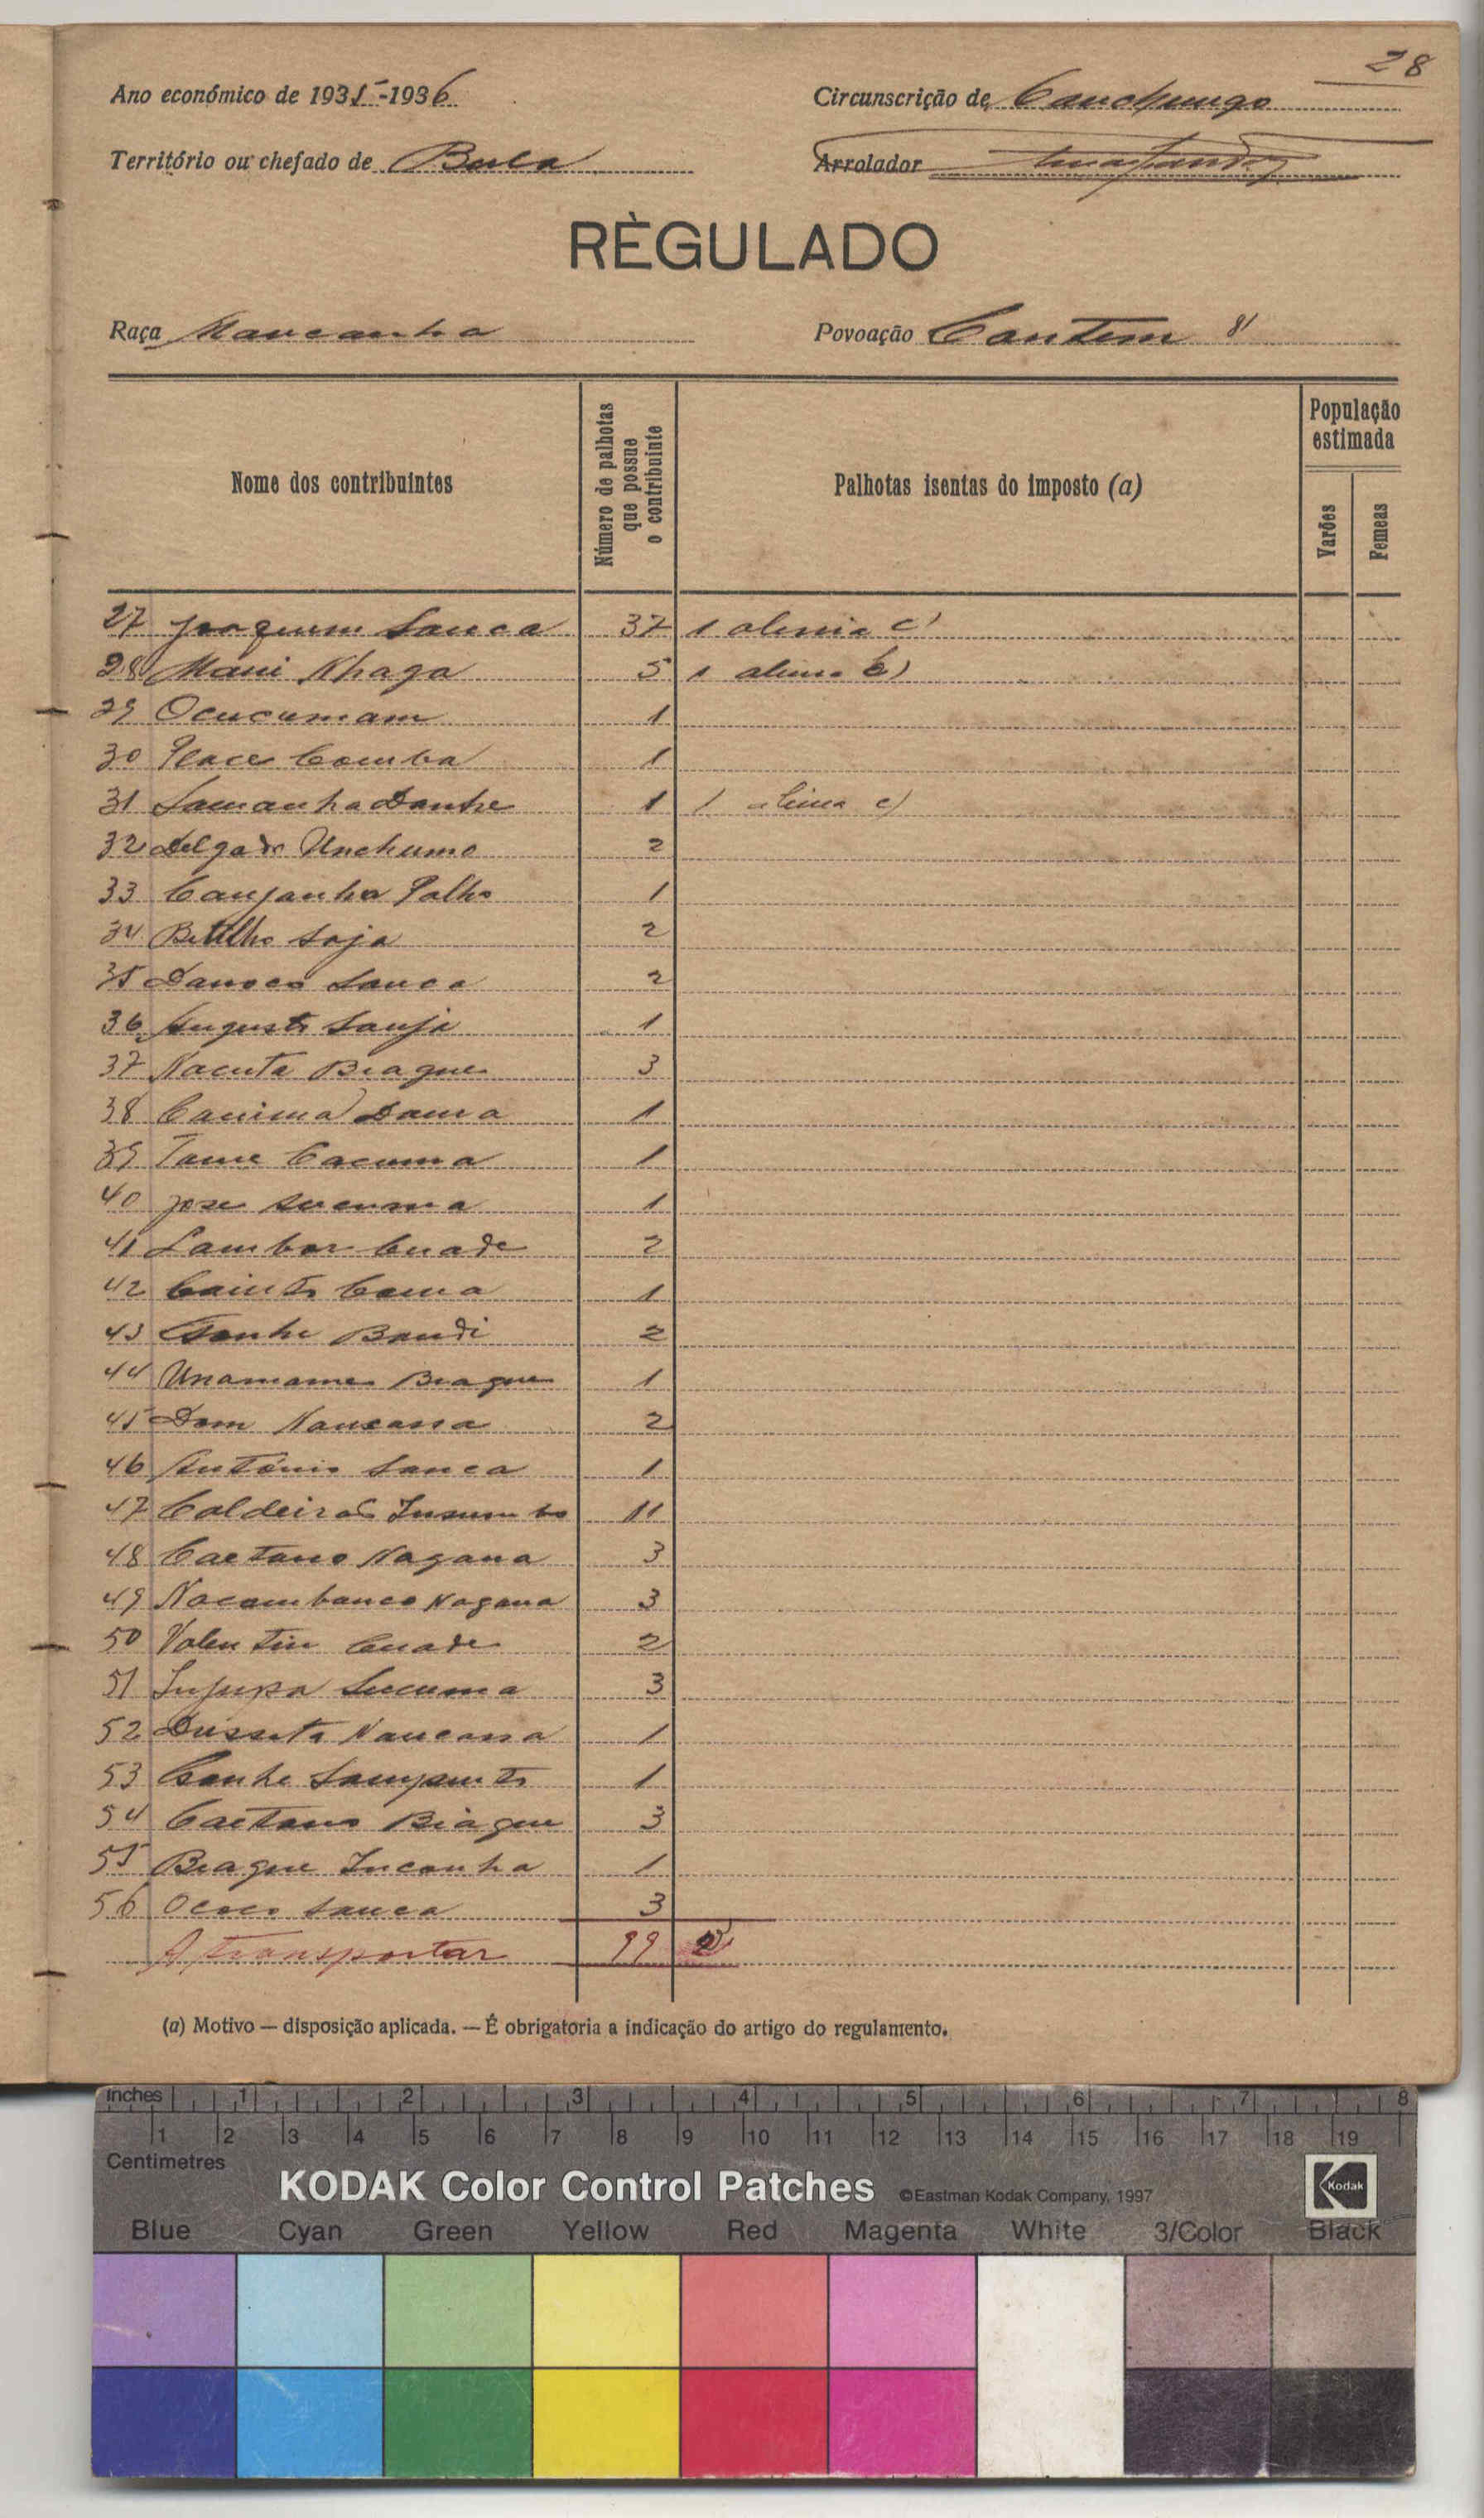 28
Ano económico de 1935-1936
Circunscrição de Canchungo
Território ou chefado de Bula
Arrolador
RÈGULADO
Raça Mancanha
Povoação Cantem
Nome dos contribuintes
Número de palhotas que possue o contribuinte
Palhotas isentas do imposto (a)
População estimada
Varões
Femeas
27 Joaquim Sanca 37 1 alinia c)
28 Mani Nhaga 5 1 alinea b)
29 Ocucumam 1
30 Place Comba 1
31 Samanha Danhe 1 1 alinea c)
32 Delgado Unchumo 2
33 Canjanha Palho 1
34 Betilho Soja 2
35 Sanca 2
36 Augusto Sanja 1
37 Nacuta Biague 3
38 Canima Dama 1
39 Tame Cacuma 1
40 Jose Sucuma 1
41 Lambor Cuade 2
42 Cainto Coma 1
43 Bandi 2
44 Unamame Biague 1
45 Dom Nancassa 2
46 António Sanca 1
47 Caldeirão Insumbo 11
48 Caetano Nagana 3
49 Nacambanco Nagana 3
50 Valentin Cuade 2
51 Injupa Sucuma 3
52 Dussuta Nancassa 1
53 Canhe 1
54 Caetano Biague 3
55 Biague Incanha 1
56 Ococo Sanca 3
A transportar 99
(a) Motivo — disposição aplicada. — É obrigatoria a indicação do artigo do regulamento.
Inches 1 2 3 4 5 6 7 8
1 2 3 4 5 6 7 8 9 10 11 12 13 14 15 16 17 18 19
Centimetres
KODAK Color Control Patches ©Eastman Kodak Company, 1997
Kodak
Blue Cyan Green Yellow Red Magenta White 3/Color Black